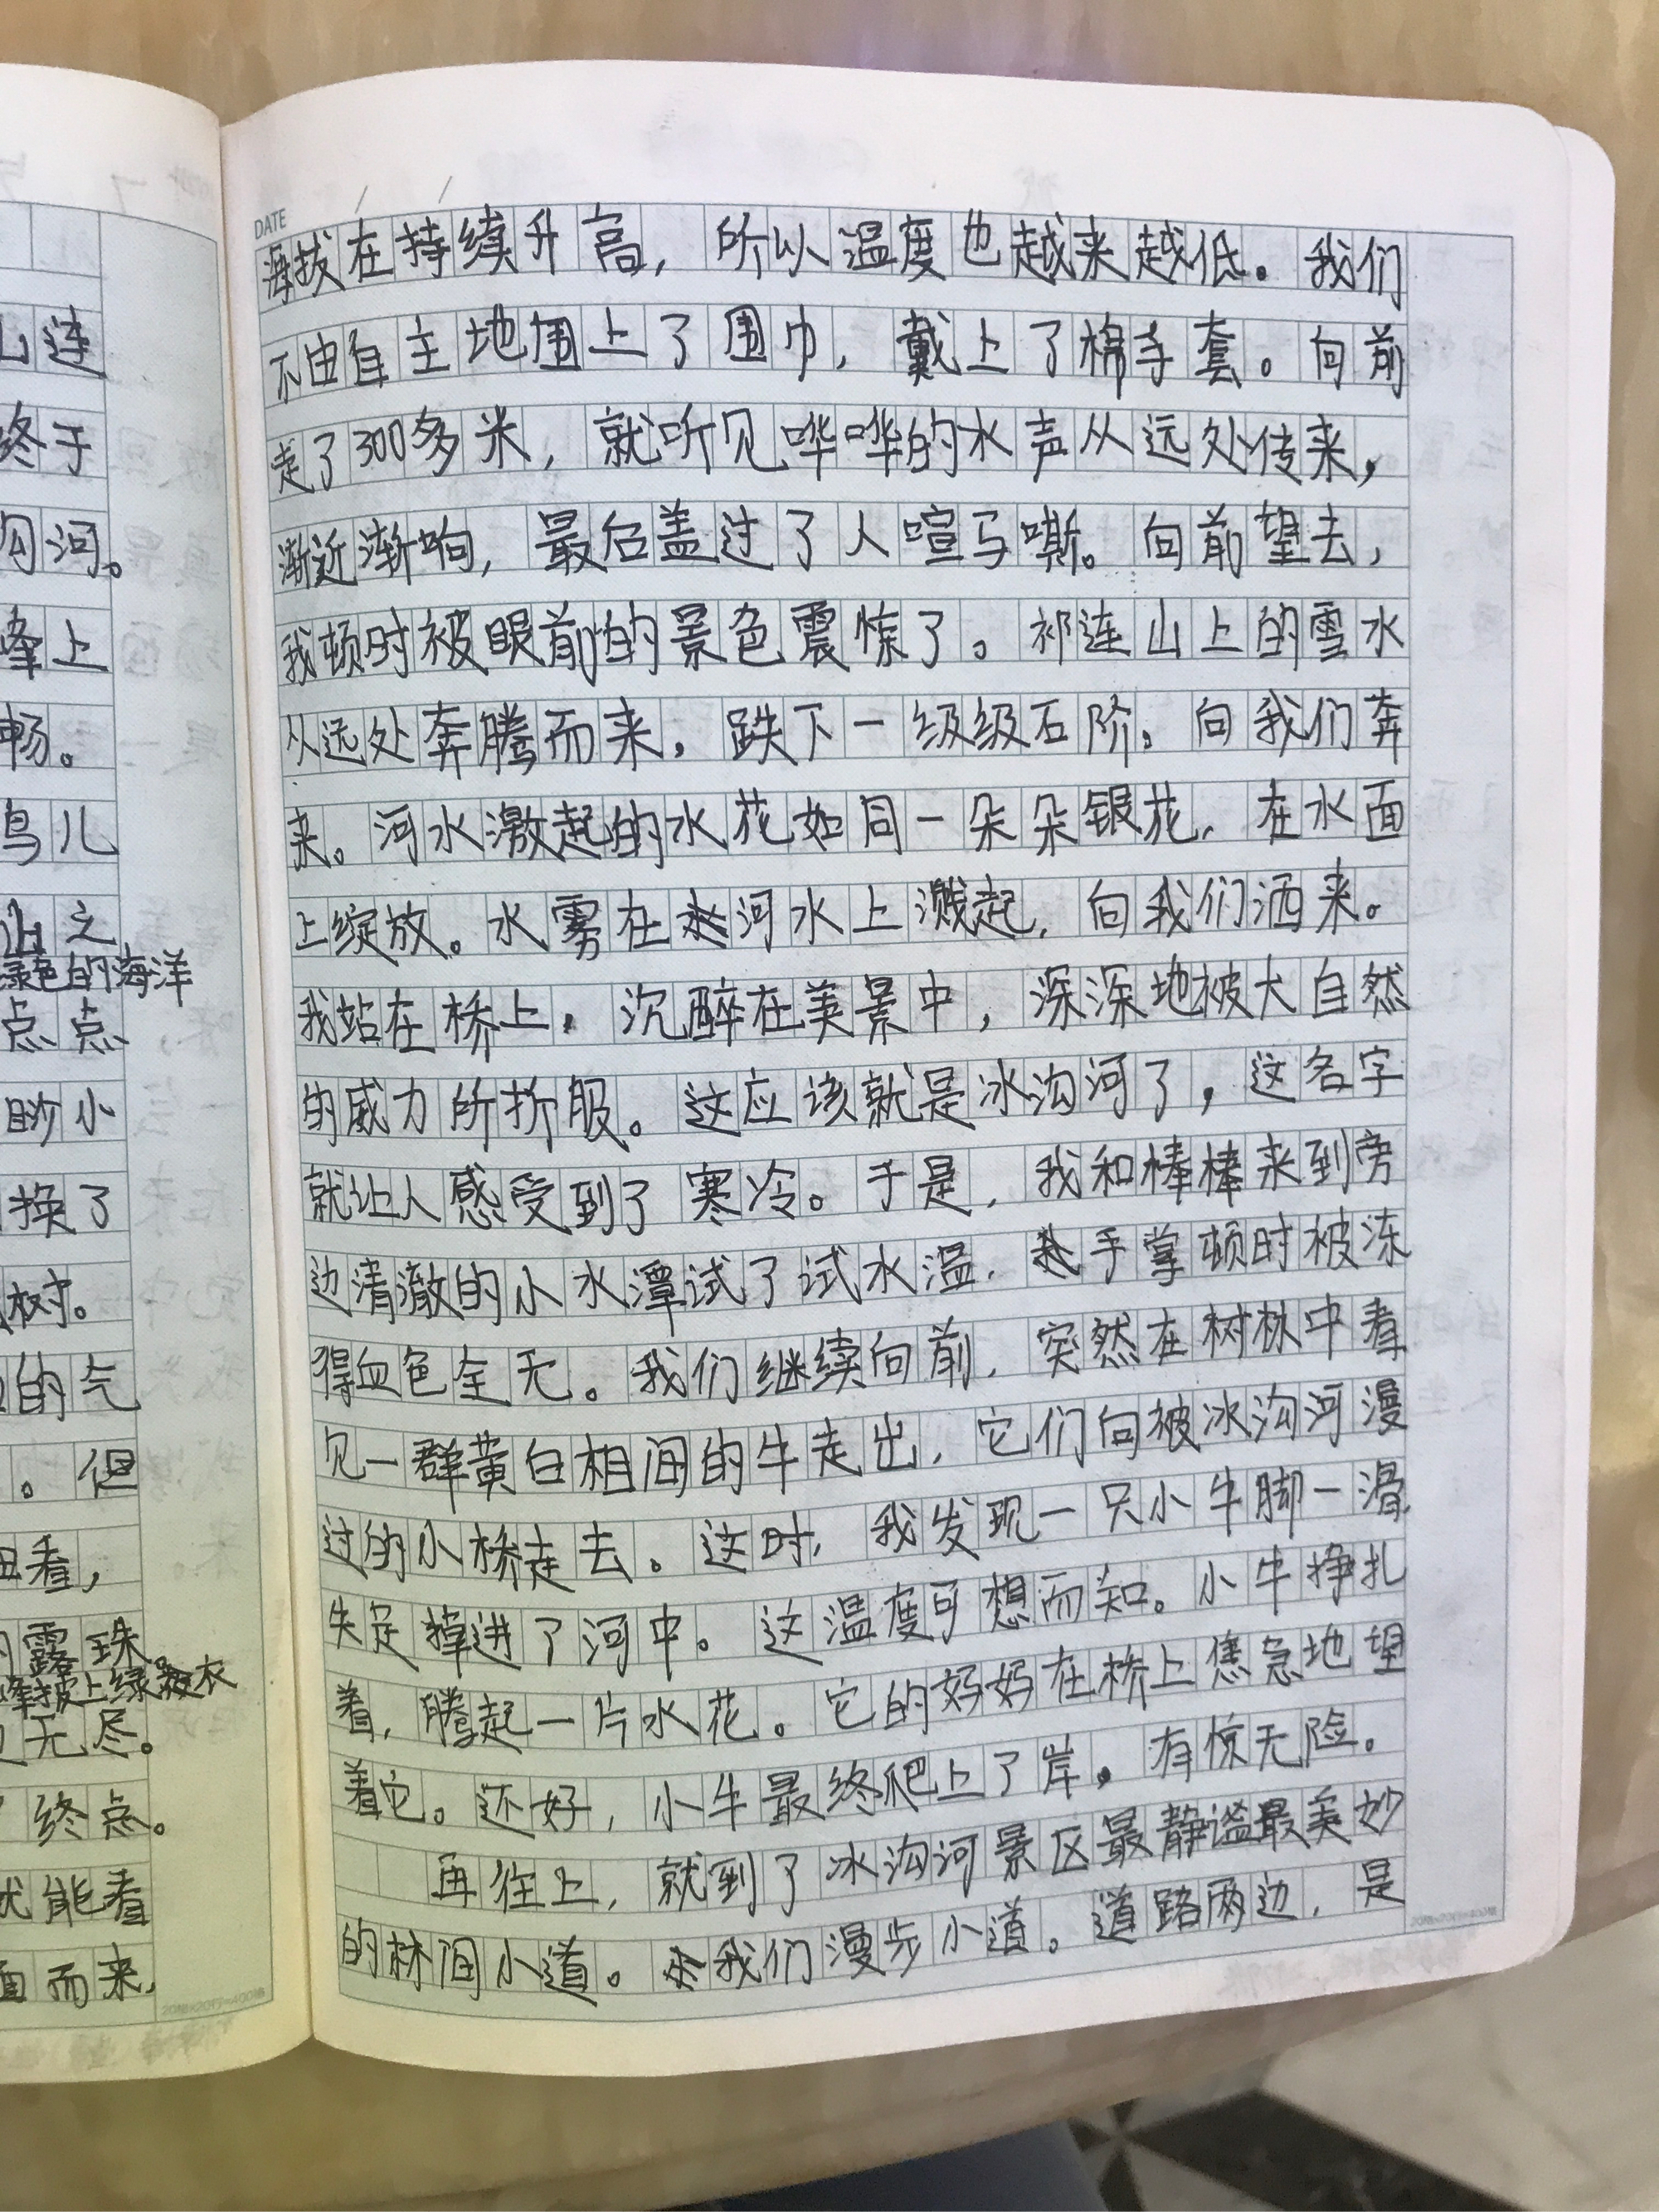 山连
终于
沟河。
峰上
畅。
鸟儿
让之
绿色的海洋
点点
眇小
换了
树。
的气
。但
看，
露珠。
峰披上绿衣
无尽。
终点。
就能看
面而来，
DATE / /
海拔在持续升高，所以温度也越来越低。我们
不由自主地围上了围巾，戴上了棉手套。向前
走了300多米，就听见哗哗的水声从远处传来，
渐近渐响，最后盖过了人喧马嘶。向前望去，
我顿时被眼前的景色震惊了。祁连山上的雪水
从远处奔腾而来，跌下一级级石阶，向我们奔
来。河水激起的水花如同一朵朵银花，在水面
上绽放。水雾在河水上溅起，向我们洒来。
我站在桥上，沉醉在美景中，深深地被大自然
的威力所折服。这应该就是冰沟河了，这名字
就让人感受到了寒冷。于是，我和棒棒来到旁
边清澈的小水潭试了试水温，手掌顿时被冻
得血色全无。我们继续向前，突然在树林中看
见一群黄白相间的牛走出，它们向被冰沟河漫
过的小桥走去。这时，我发现一只小牛脚一滑，
失足掉进了河中。这温度可想而知。小牛挣扎
着，腾起一片水花。它的妈妈在桥上焦急地望
着它。还好，小牛最终爬上了岸，有惊无险。
再往上，就到了冰沟河景区最静谧最美妙
的林间小道。我们漫步小道。道路两边，是